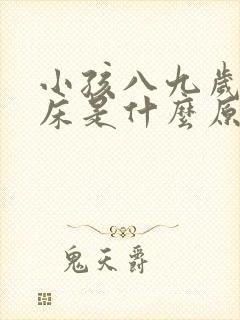 小孩八九歲
床是什麼原
鬼天爵